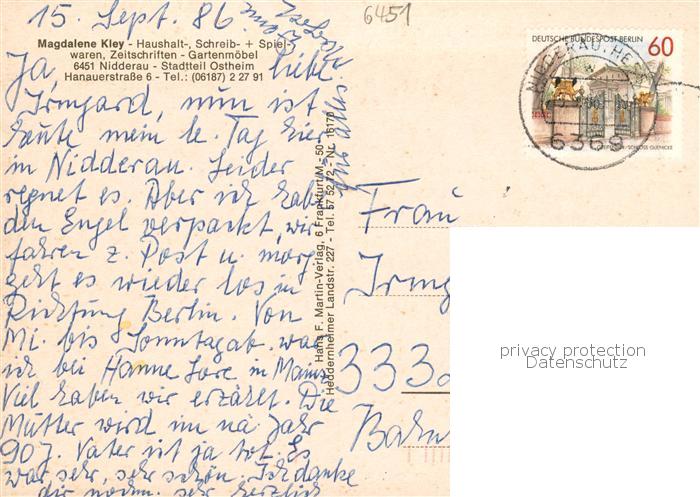 15. Sept. 86
6451
Magdalene Kley - Haushalt-, Schreib- + Spiel-
waren, Zeitschriften - Gartenmöbel
6451 Nidderau - Stadtteil Ostheim
Hanauerstraße 6 - Tel.: (06187) 2 27 91
Ja, liebe
Irmgard, nun ist
heute mein le. Tag hier
in Nidderau. Leider
regnet es. Aber ich habe
den Engel verpackt, wir
fahren z. Post u. morg.
geht es wieder los in
Richtung Berlin. Von
Mi. bis Sonntagab. war
ich bei Hanne Lore in Mainz
Viel haben wir erzählt. Die
Mutter wird im nä. Jahr
90 J. Vater ist ja tot. Es
war sehr, sehr schön. Ich danke
dir noch. sehr herzlich
für alles
Hans F. Martin-Verlag, 6 Frankfurt/M.-50
Heddernheimer Landstr. 227 - Tel. 57 52 72 - Nr. 16170
DEUTSCHE BUNDESPOST BERLIN
60
SCHLOSS GLIENICKE
NIDDERAU, HES
6369
Frau
Irmg
333
Bahn
privacy protection
Datenschutz